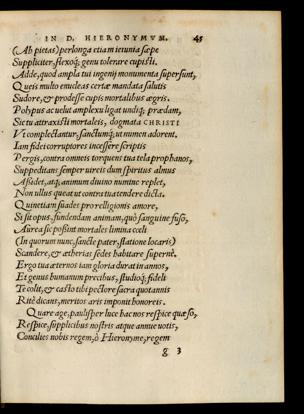 IN D. HIERONYMVM. 45
(Ah pietas) perlonga etiam ieiunia sæpe
Suppliciter, flexoq; genu tolerare cupisti.
Adde, quod ampla tui ingenij monumenta supersunt,
Queis multo emueleas certæ mandata salutis
Sudore, & prodesse cupis mortalibus ægris.
Polypus ac veluti amplexu ligat undiq; prædam,
Sic tu attraxisti mortaleis, dogmata CHRISTI
Vt complectantur, sanctumq; ut numen adorent.
Iam fidei corruptores incessere scriptis
Pergis, contra omneis torquens tua tela prophanos,
Suppeditans semper vireis dum spiritus almus
Assidet, atq; animum diuino numine replet,
Non ullus queat ut contra tua tendere dicta.
Quinetiam suades pro relligionis amore,
Si sit opus, fundendam animam, quò sanguine fuso,
Aurea sic possint mortales limina cœli
(In quorum nunc, sancte pater, statione locaris)
Scandere, & ætherias sedes habitare supernè.
Ergo tua æternos iam gloria durat in annos,
Et genus humanum precibus, studioq; fideli
Te colit, & casto tibi pectore sacra quotannis
Ritè dicans, meritos aris imponit honoreis.
Quare age, paulisper luce hac nos respice quæso,
Respice, supplicibus nostris atque annue votis,
Concilies nobis regem, ô Hieronyme, regem
g 3